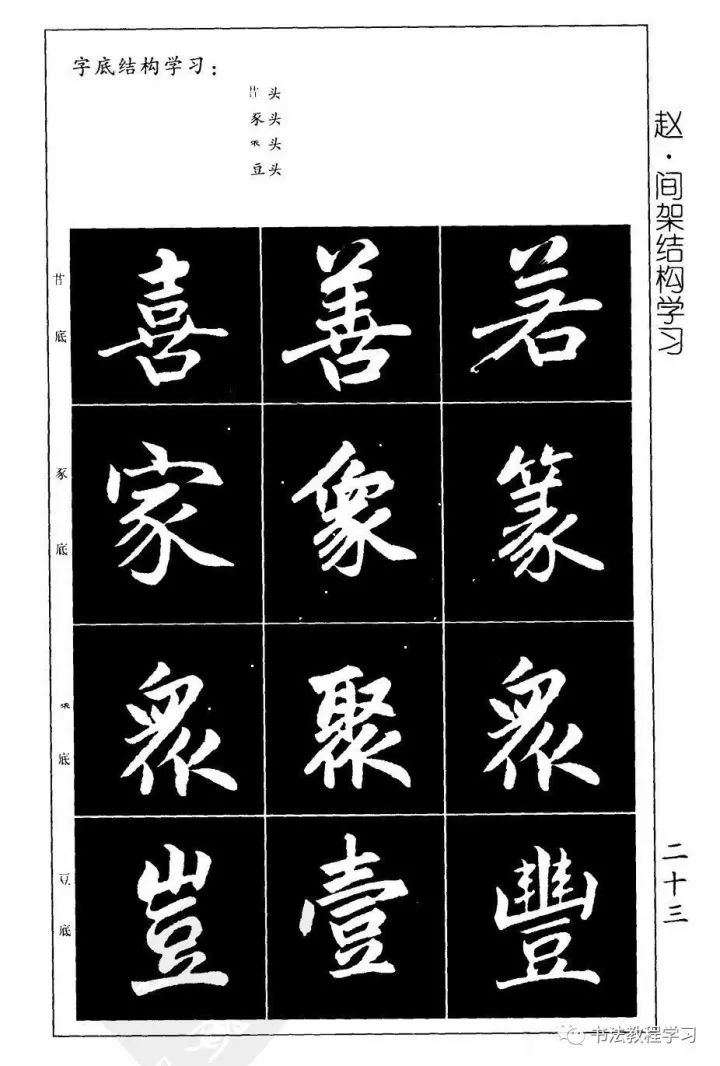 字底结构学习：
头
豕头
头
豆头
赵·间架结构学习
底
喜 善 若
豕底
家 象 篆
底
眾 聚 眾
豆底
豈 壹 豐
二十三
书法教程学习